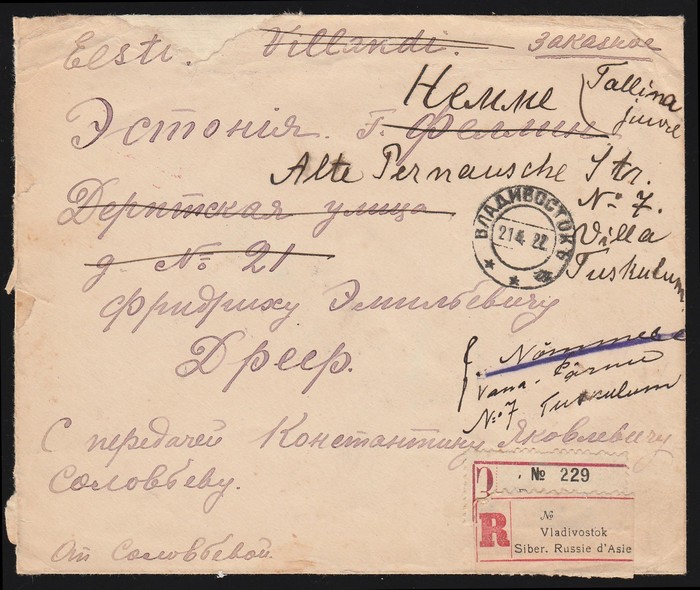 Eesti. Villandi. заказное
Немме (Tallina
juure
Эстонія. г. Феллин
Alte Pernausche Str.
№ 7.
Дерптская улица
Villa
д. № 21
Tuskulum.
ВЛАДИВОСТОКЪ
21 4 22
Фридриху Эмильевичу
Дреер.
Nõmme
Vana-Pärnu
№ 7 Tuskulum
С передачей Константину Яковлевичу
Соловьеву.
От Соловьевой.
№ 229
R
№
Vladivostok
Siber. Russie d'Asie